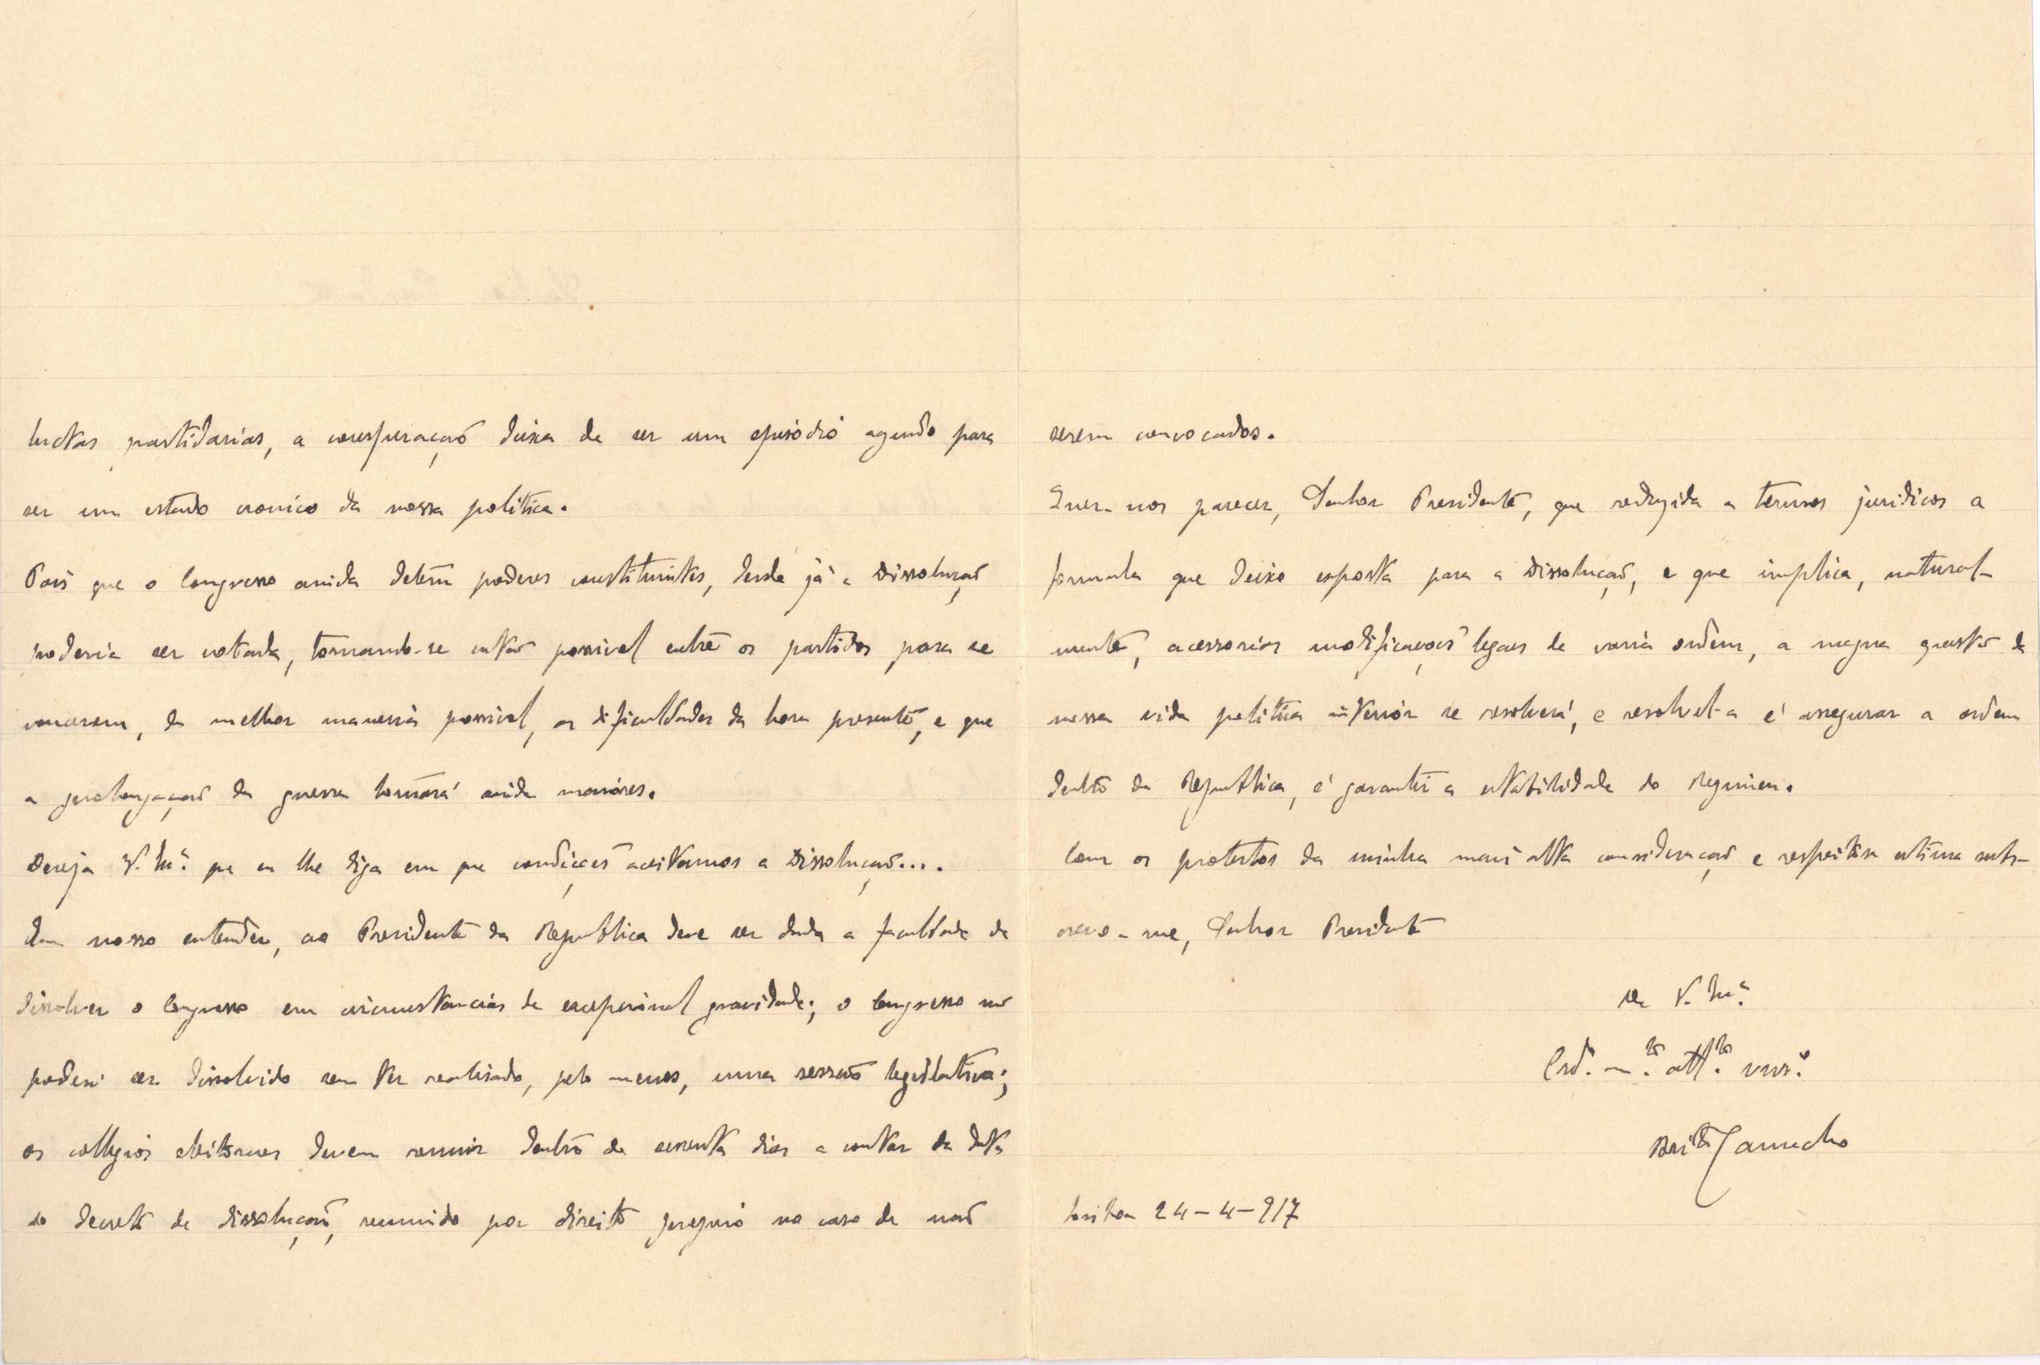 luctas partidarias, a conspiração deixa de ser um episódio agudo para
ser um estado cronico da nossa politica.
Pois que o Congresso ainda detem poderes constituintes, desde já a dissolução
poderia ser votada, tornando-se então possivel entre os partidos para se
vencerem, da melhor maneira possivel, as dificuldades da hora presente, e que
a prolongação da guerra tornará ainda maiores.
Deseja V. Ex.ª que eu lhe diga em que condições aceitamos a dissolução....
Em nosso entender, ao Presidente da Republica deve ser dada a faculdade de
dissolver o Congresso em circunstancias de excepcional gravidade; o Congresso não
poderá ser dissolvido sem ter realisado, pelo menos, uma sessão legislativa;
os collegios eleitoraes devem reunir dentro de sessenta dias a contar da data
do decreto de dissolução, reunindo por direito proprio no caso de não
serem convocados.
Quer-nos parecer, Senhor Presidente, que reduzida a termos juridicos a
formula que deixo exposta para a dissolução, e que implica, natural-
mente, acessorias modificações legaes de varia ordem, a magna questão da
nossa vida politica interior se resolverá, e resolvel-a é assegurar a ordem
dentro da Republica, é garantir a estabilidade do Regimen.
Com os protestos da minha mais alta consideração e respeitosa estima subs-
crevo-me, Senhor Presidente
De V. Ex.ª
Crd.º m.to att.to vnr.º
Brito Camacho
Lisboa 24-4-917